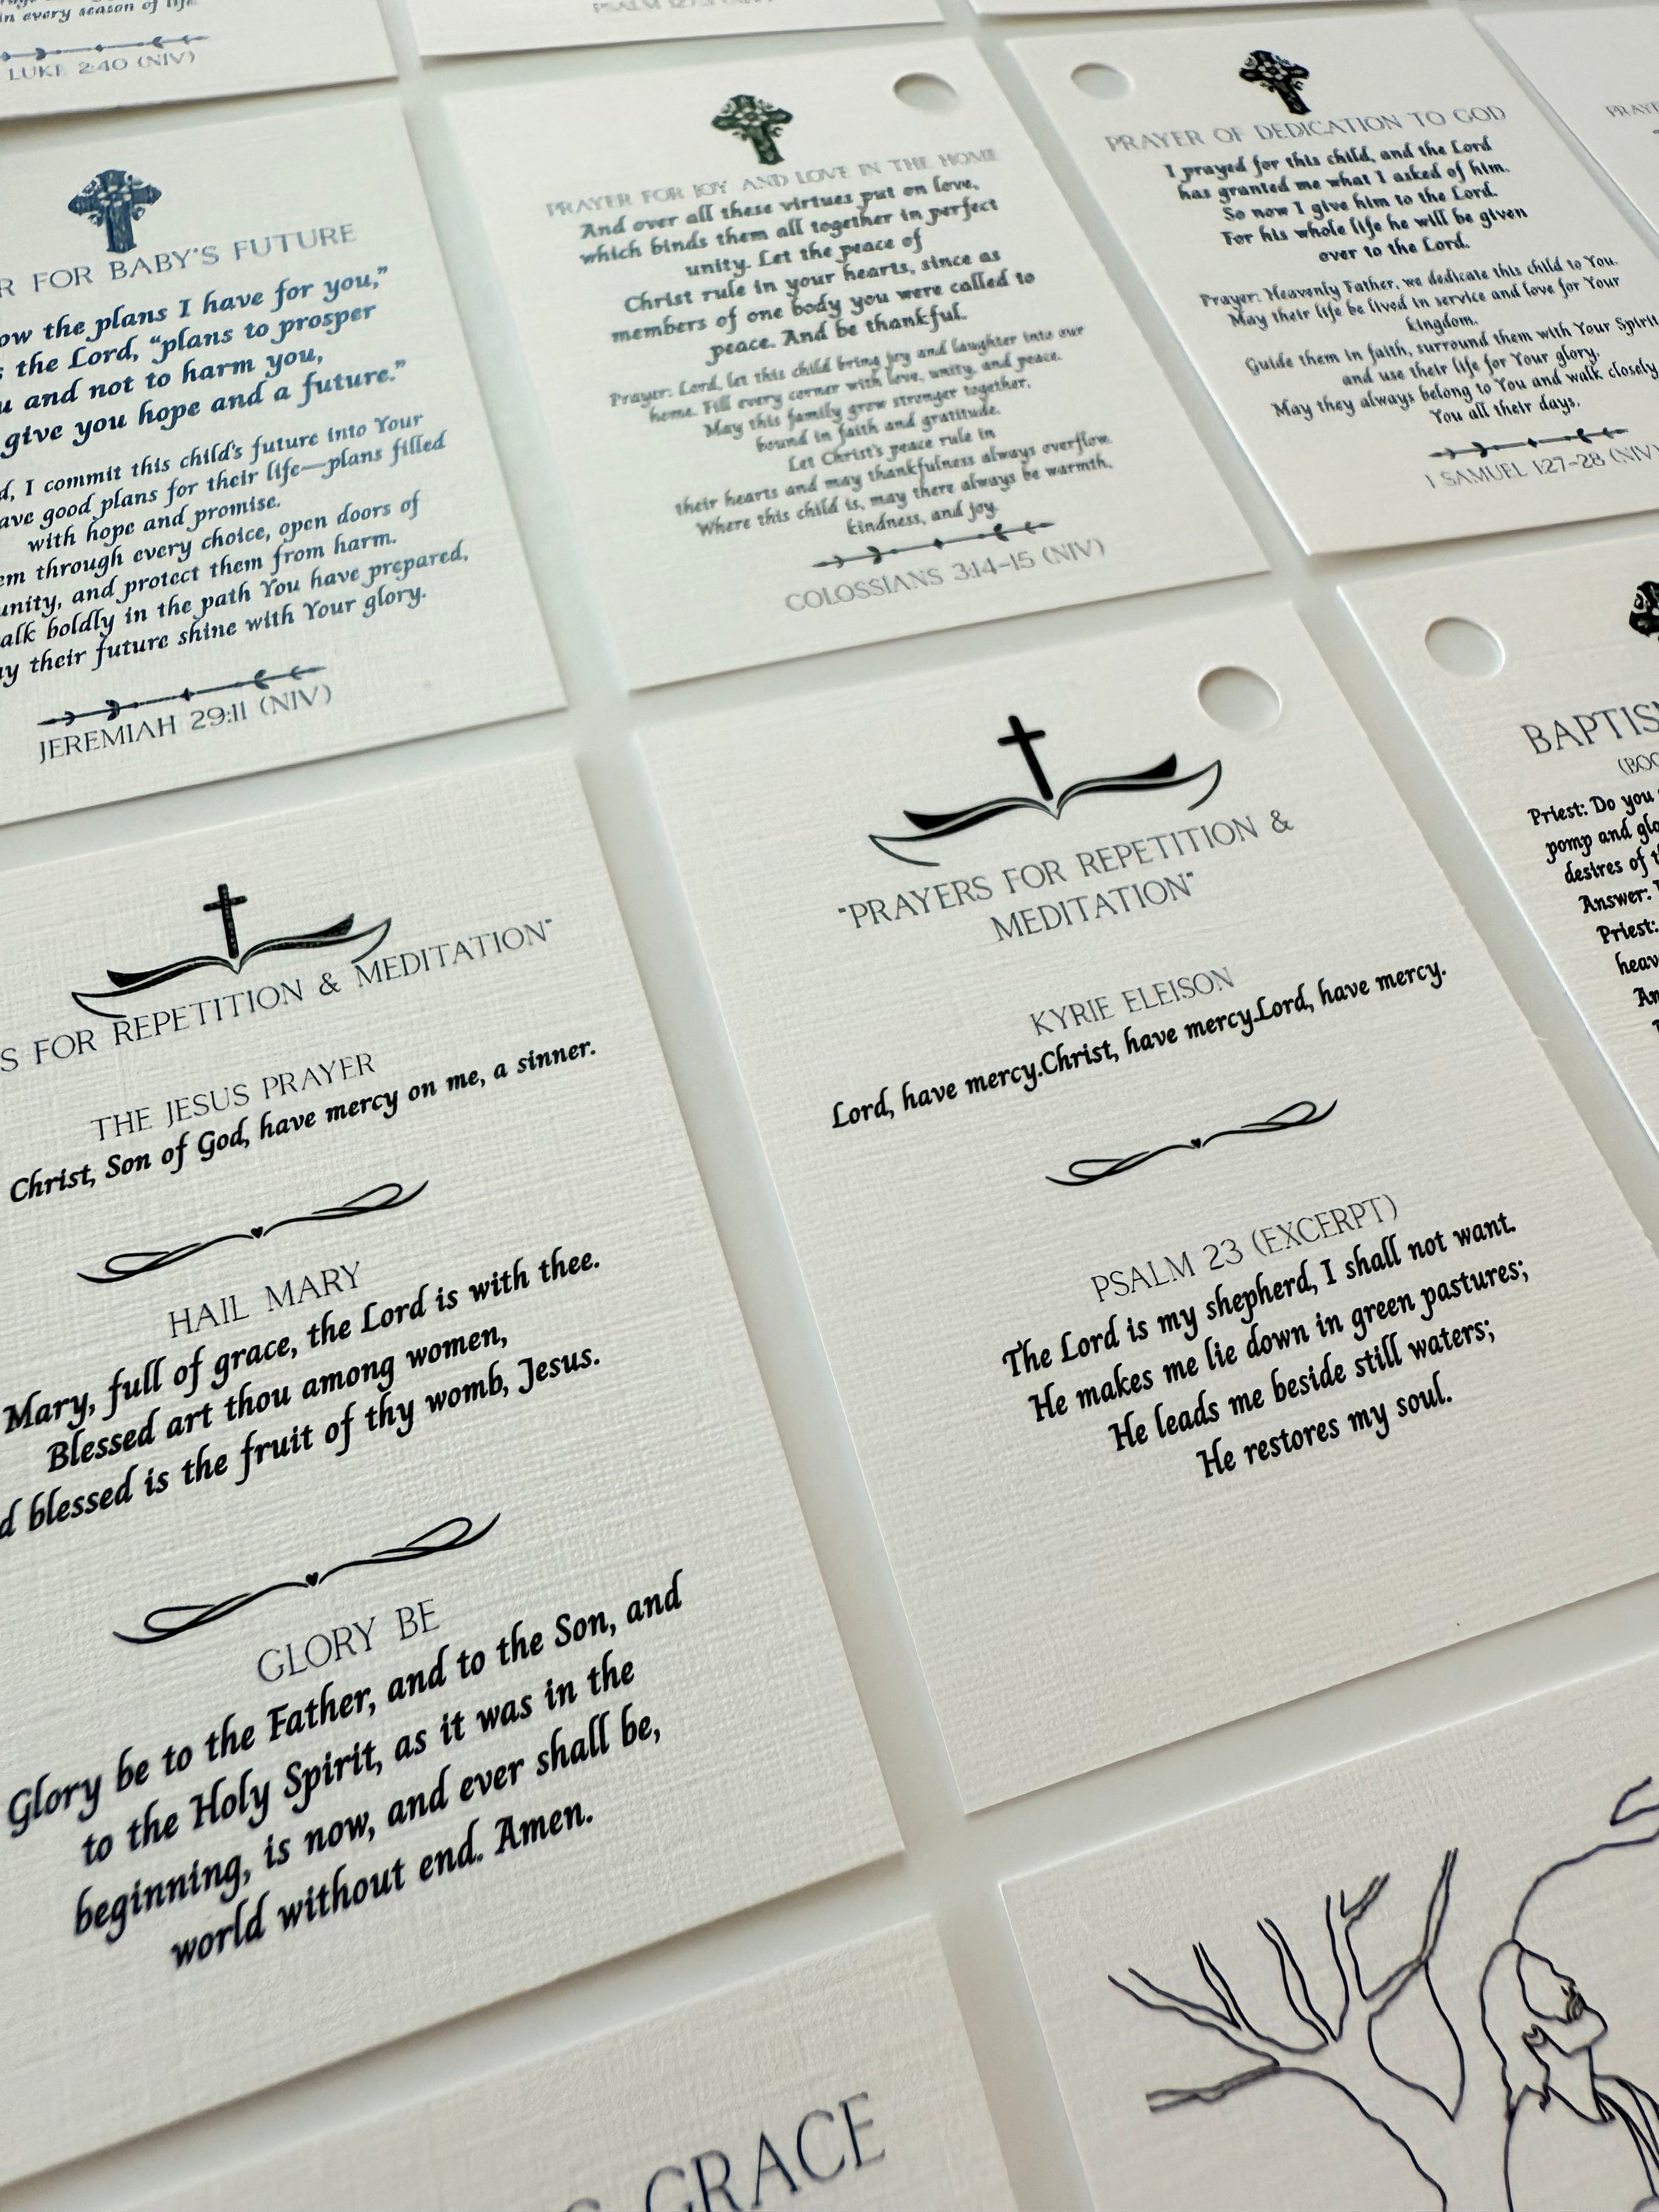 in every season of life
LUKE 2:40 (NIV)
PSALM 127:3 (NIV)
R FOR BABY'S FUTURE
ow the plans I have for you,”
s the Lord, “plans to prosper
u and not to harm you,
give you hope and a future.”
d, I commit this child's future into Your
ave good plans for their life—plans filled
with hope and promise.
em through every choice, open doors of
unity, and protect them from harm.
alk boldly in the path You have prepared,
ay their future shine with Your glory.
JEREMIAH 29:11 (NIV)
PRAYER FOR JOY AND LOVE IN THE HOME
And over all these virtues put on love,
which binds them all together in perfect
unity. Let the peace of
Christ rule in your hearts, since as
members of one body you were called to
peace. And be thankful.
Prayer: Lord, let this child bring joy and laughter into our
home. Fill every corner with love, unity, and peace.
May this family grow stronger together,
bound in faith and gratitude.
Let Christ's peace rule in
their hearts and may thankfulness always overflow.
Where this child is, may there always be warmth,
kindness, and joy.
COLOSSIANS 3:14-15 (NIV)
PRAYER OF DEDICATION TO GOD
I prayed for this child, and the Lord
has granted me what I asked of him.
So now I give him to the Lord.
For his whole life he will be given
over to the Lord.
Prayer: Heavenly Father, we dedicate this child to You.
May their life be lived in service and love for Your
kingdom.
Guide them in faith, surround them with Your Spirit
and use their life for Your glory.
May they always belong to You and walk closely
You all their days.
1 SAMUEL 1:27-28 (NIV)
S FOR REPETITION & MEDITATION"
THE JESUS PRAYER
Christ, Son of God, have mercy on me, a sinner.
HAIL MARY
Mary, full of grace, the Lord is with thee.
Blessed art thou among women,
d blessed is the fruit of thy womb, Jesus.
GLORY BE
Glory be to the Father, and to the Son, and
to the Holy Spirit, as it was in the
beginning, is now, and ever shall be,
world without end. Amen.
"PRAYERS FOR REPETITION &
MEDITATION"
KYRIE ELEISON
Lord, have mercy.Christ, have mercy.Lord, have mercy.
PSALM 23 (EXCERPT)
The Lord is my shepherd, I shall not want.
He makes me lie down in green pastures;
He leads me beside still waters;
He restores my soul.
BAPTISM
(BOO
Priest: Do you
pomp and glo
desires of t
Answer:
Priest:
heav
An
GRACE